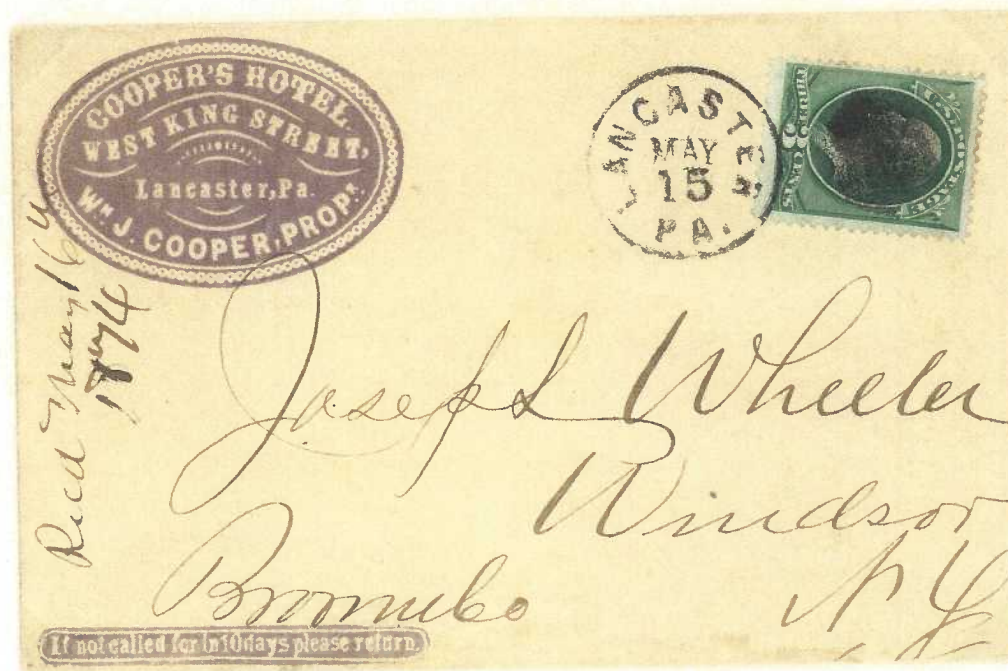 COOPER'S HOTEL
WEST KING STREET,
Lancaster, Pa.
Wᴹ J. COOPER, PROPᴿ
LANCASTER
MAY
15
PA.
U.S. POSTAGE
THREE 3 CENTS
Recd May 16th
1874
Joseph Wheeler
Windsor
Broome Co
N Y
If not called for in 10 days please return.